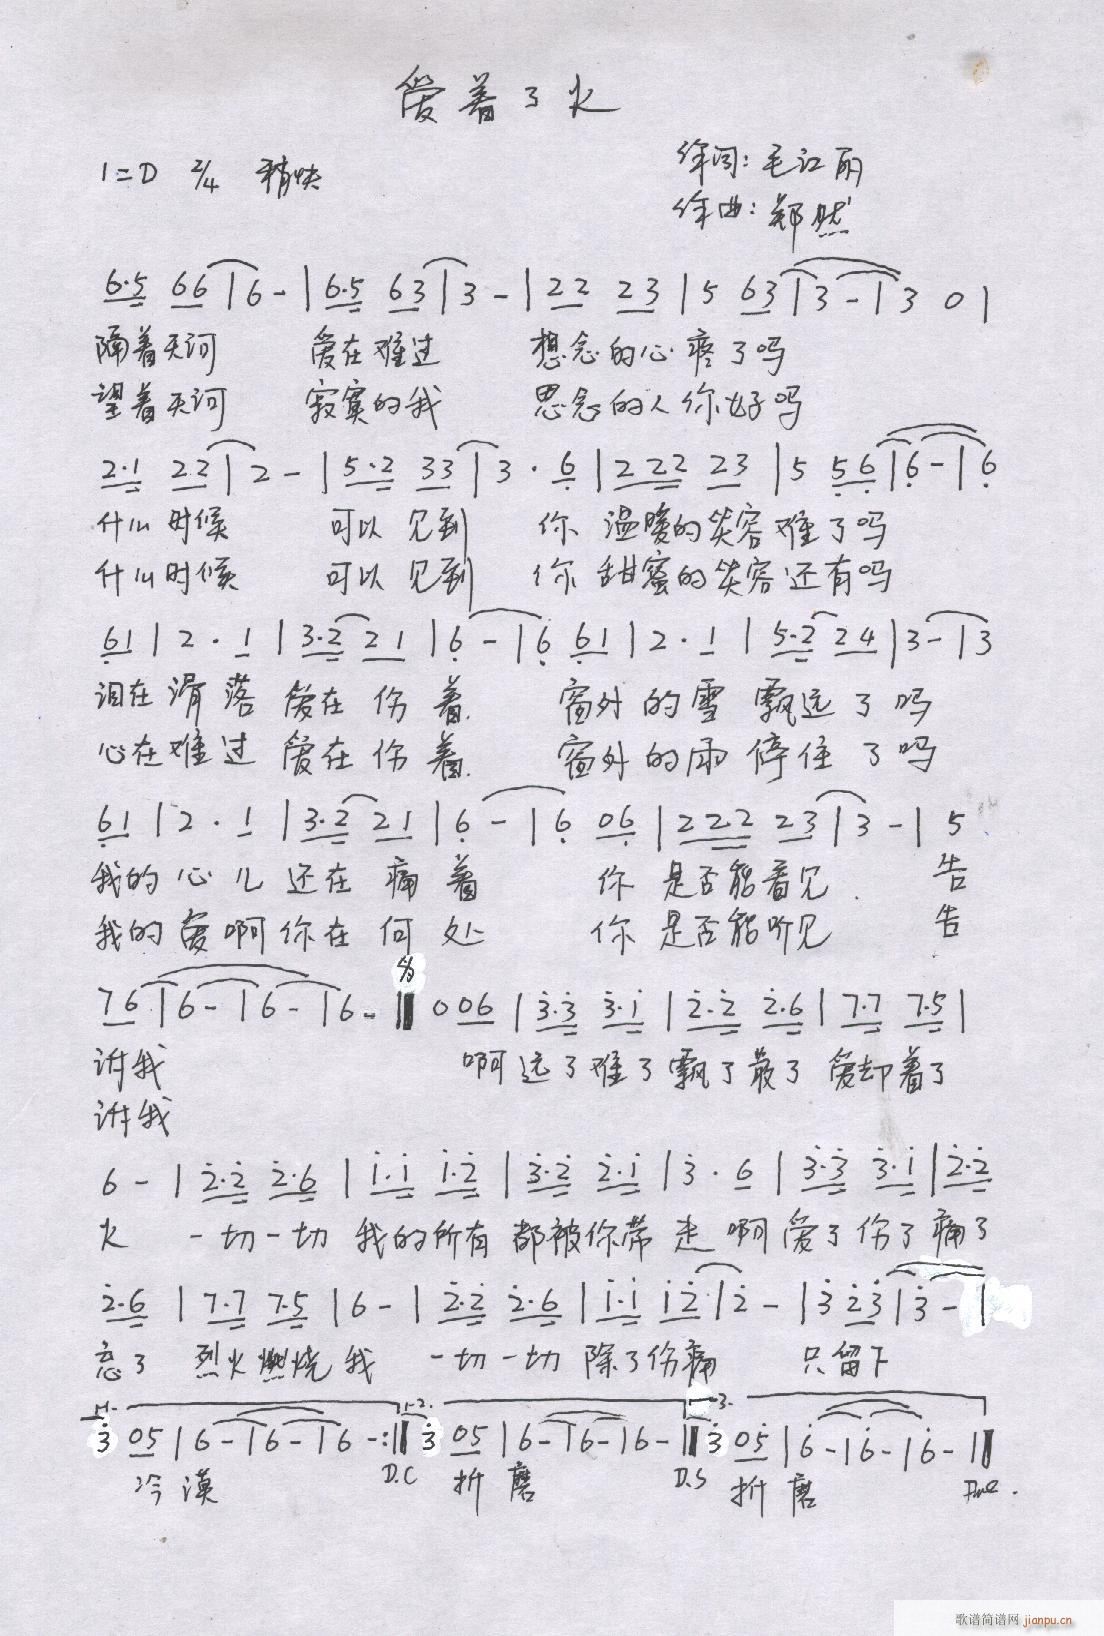 爱着了火
1=D 2/4 稍快
作词：毛江丽
作曲：郑然
6·5 66 | 6 - | 6·5 63 | 3 - | 22 23 | 5 63 | 3 - | 3 0 |
隔着天河 爱在难过 想念的心疼了吗
望着天河 寂寞的我 思念的人你好吗
2·1 22 | 2 - | 5·2 33 | 3 · 6 | 2 22 23 | 5 56 | 6 - | 6
什么时候 可以见到 你温暖的笑容难了吗
什么时候 可以见到 你甜蜜的笑容还有吗
61 | 2 · 1 | 3·2 21 | 6 - | 6 61 | 2 · 1 | 5·2 24 | 3 - | 3
泪在滑落爱在伤着 窗外的雪飘远了吗
心在难过爱在伤着 窗外的雨停住了吗
61 | 2 · 1 | 3·2 21 | 6 - | 6 06 | 2 2·2 23 | 3 - | 5
我的心儿还在痛着 你是否能看见 告
我的爱啊你在何处 你是否能听见 告
76 | 6 - | 6 - | 6 - || 0 06 | 3·3 3·1 | 2·2 2·6 | 7·7 7·5 |
诉我 啊远了难了飘了散了爱却着了
诉我
6 - | 2·2 2·6 | 1·1 1·2 | 3·2 2·1 | 3 · 6 | 3·3 3·1 | 2·2
火 一切一切我的所有都被你带走啊爱了伤了痛了
2·6 | 7·7 7·5 | 6 - | 2·2 2·6 | 1·1 12 | 2 - | 3 23 | 3 - |
忘了 烈火燃烧我 一切一切除了伤痛 只留下
1-2. 3.
3 05 | 6 - | 6 - | 6 - :|| 3 05 | 6 - | 6 - | 6 - || 3 05 | 6 - | 6 - | 6 - ||
冷漠 D.C 折磨 D.S 折磨 Fine.
歌谱简谱网 jianpu.cn